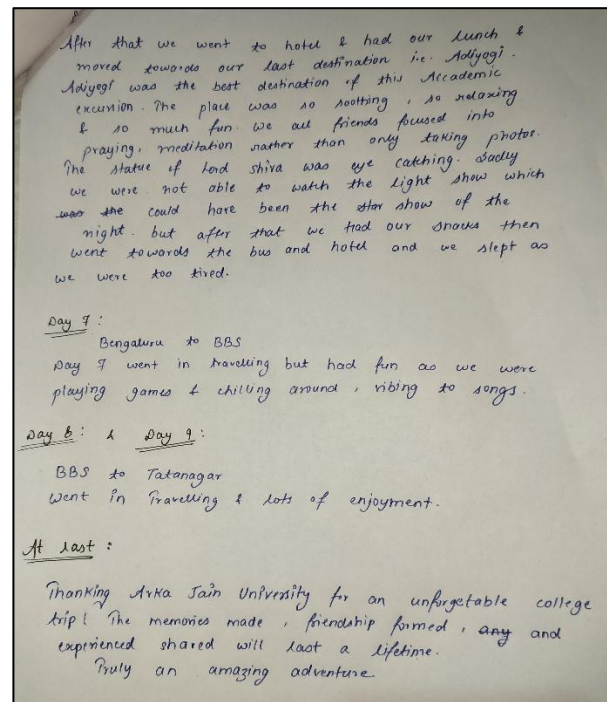 After that we went to hotel & had our lunch &
moved towards our last destination i.e. Adiyogi.
Adiyogi was the best destination of this Accademic
excursion. The place was so sootting, so relaxing
& so much fun. we all friends focused into
praying, meditation rather than only taking photos.
The statue of Lord Shiva was eye catching. Sadly
we were not able to watch the light show which
was the could have been the star show of the
night. but after that we had our snacks then
went towards the bus and hotel and we slept as
we were too tired.
Day 7:
Bengaluru to BBS
Day 7 went in travelling but had fun as we were
playing games & chilling around, vibing to songs.
Day 8: & Day 9:
BBS to Tatanagar
Went in Travelling & lots of enjoyment.
At last:
Thanking Arka Jain University for an unforgetable college
trip! The memories made, friendship formed, any and
experienced shared will last a lifetime.
Truly an amazing adventure